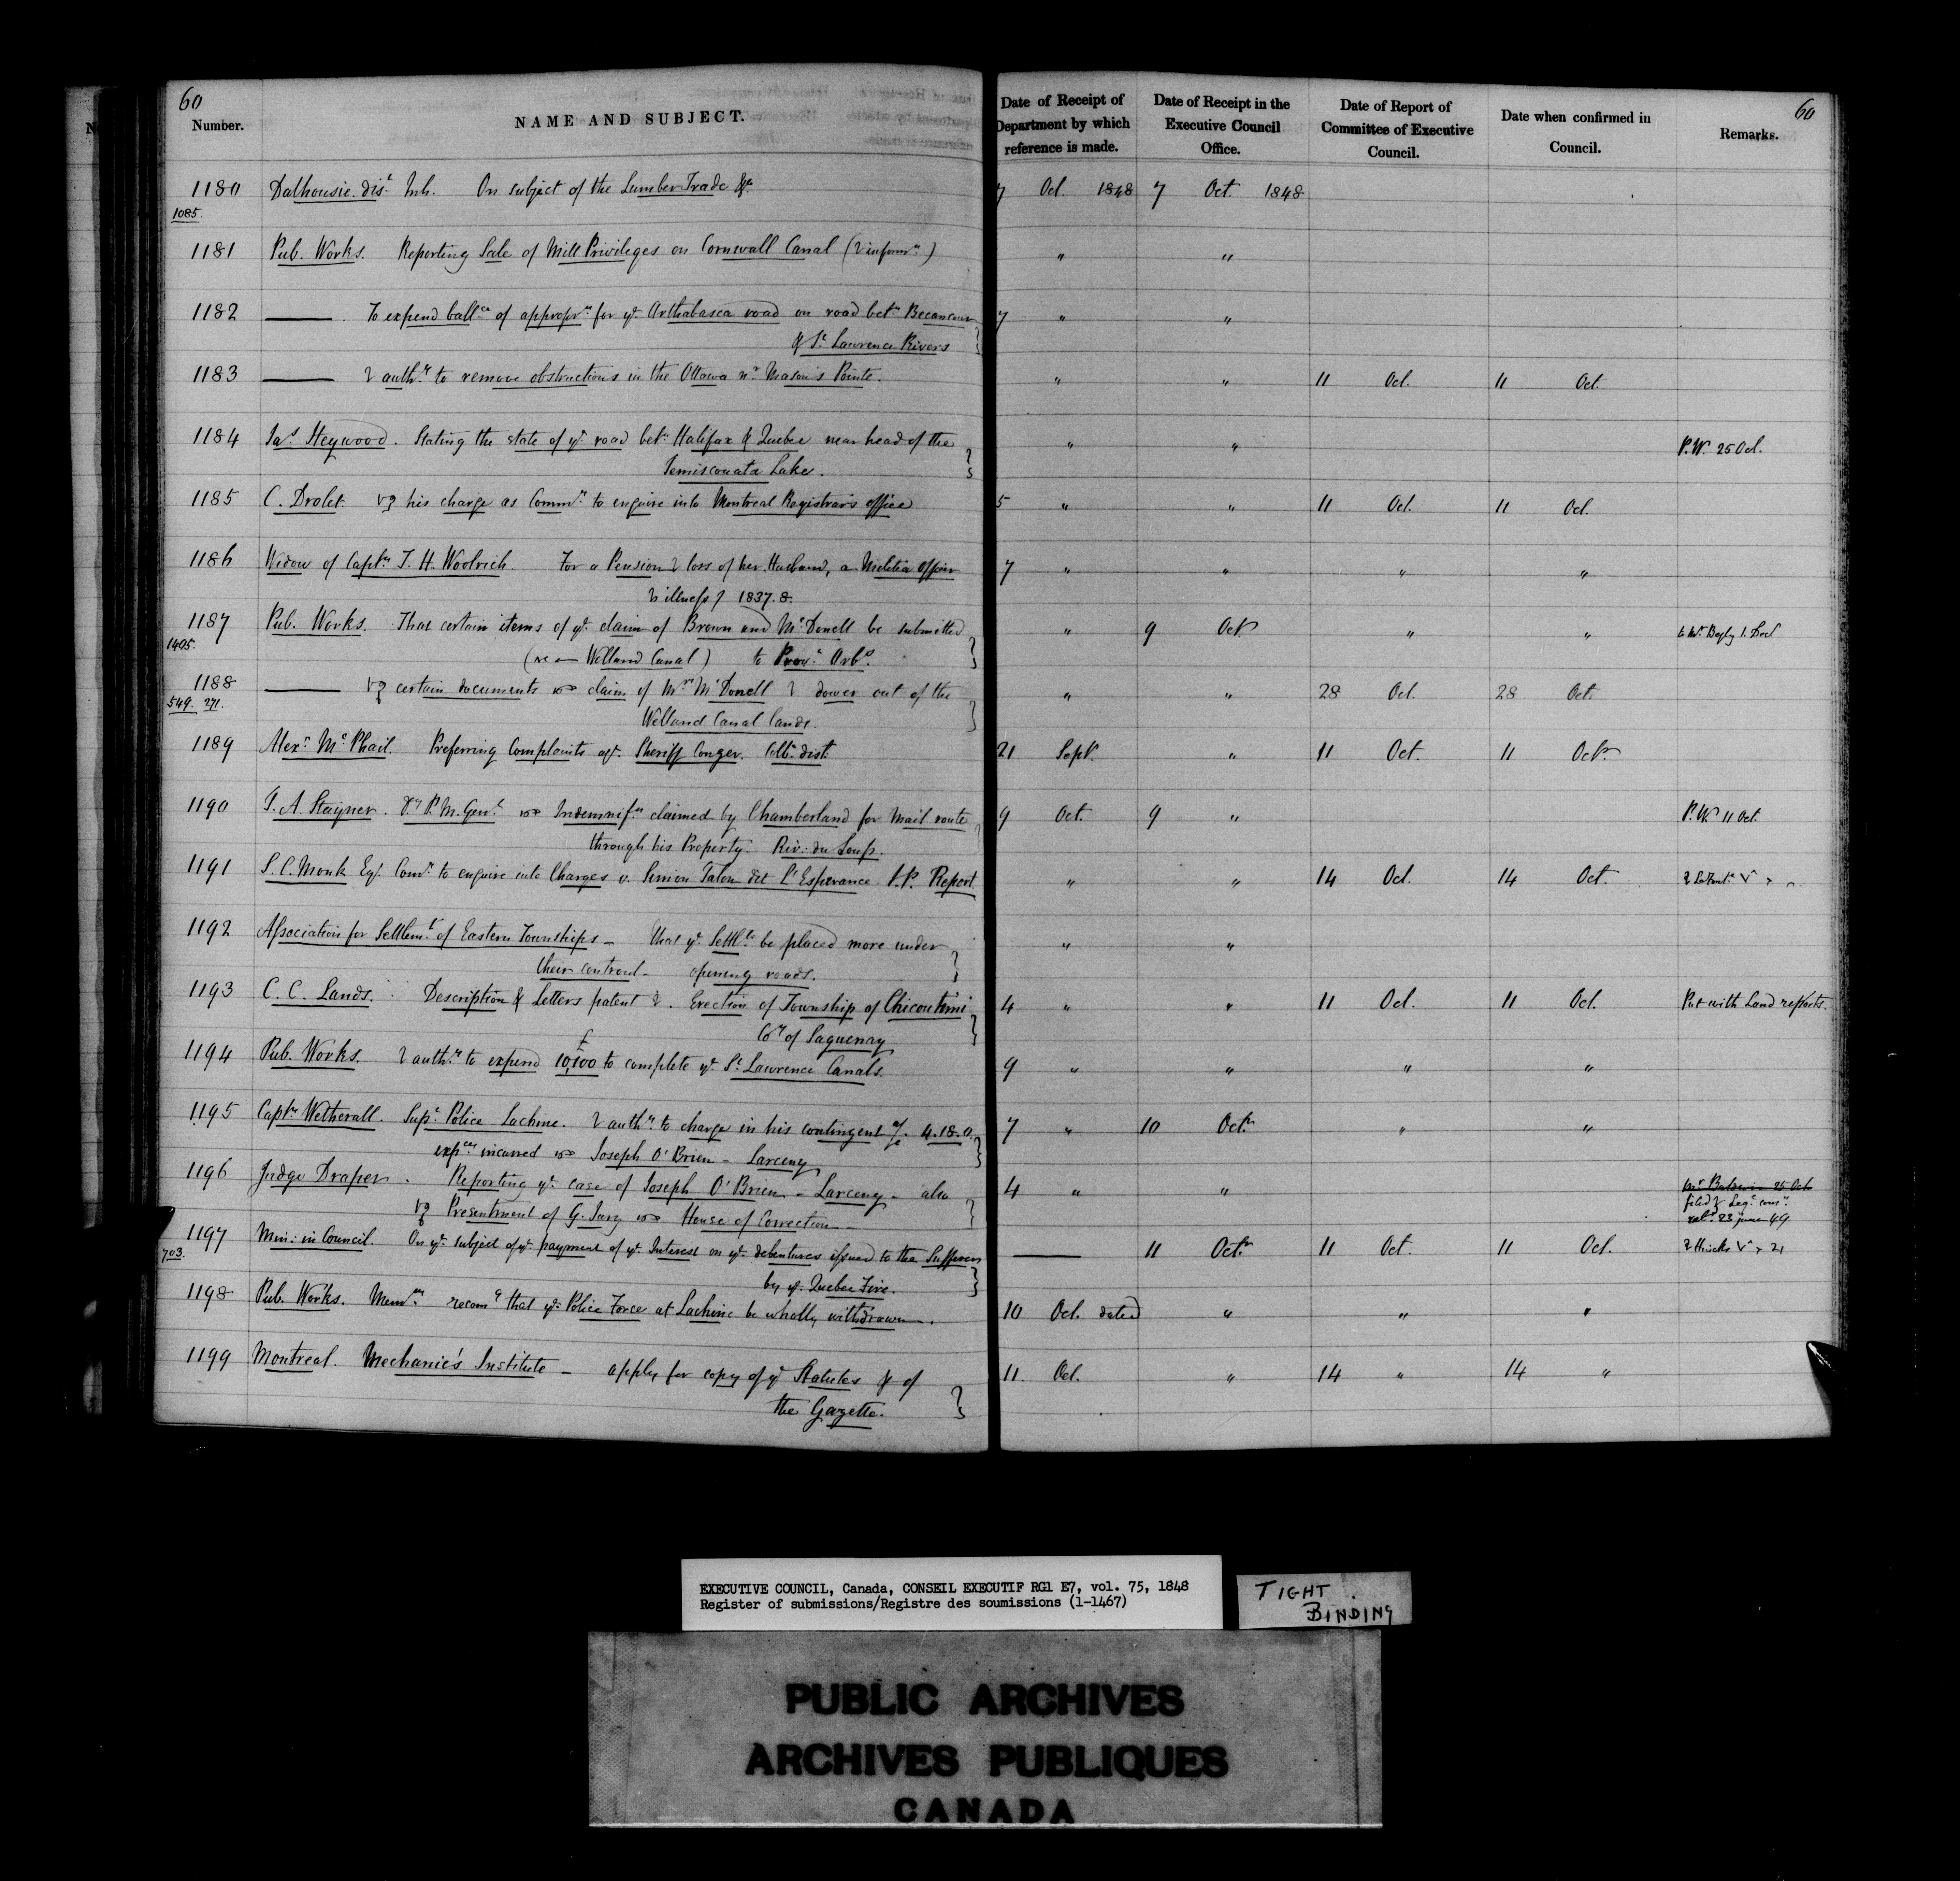 60
Number.
NAME AND SUBJECT.
Date of Receipt of Department by which reference is made.
Date of Receipt in the Executive Council Office.
Date of Report of Committee of Executive Council.
Date when confirmed in Council.
Remarks.
60
1180 Dalhousie dist Inh. On subject of the Lumber Trade &c 7 Oct. 1848 7 Oct. 1848
1085.
1181 Pub. Works. Reporting Sale of Mill Privileges on Cornwall Canal ( informn) " "
1182 ——— . To expend ballce of appropn for ye Arthabasca road on road betn Becancour 7 " "
& St Lawrence Rivers
1183 ——— authy to remove obstructions in the Ottawa nr Mason's Pointe. " " 11 Oct. 11 Oct.
1184 Jas Heywood. Stating the state of ye road betn Halifax & Quebec near head of the " " P.W. 25 Oct.
Temiscouata Lake.
1185 C. Drolet. his charge as Commr to enquire into Montreal Registrar's office 5 " " 11 Oct. 11 Oct.
1186 Widow of Captn T. H. Woolrich. For a Pension loss of her Husband, a Militia Officer 7 " " " "
illness 1837.8.
1187 Pub. Works. That certain items of ye claim of Brown and McDonell be submitted " 9 Octr " " to Mr Begly 1. Decr
1405.
(re — Welland Canal) to Provl Arbs.
1188 ——— certain documents claim of Mrs McDonell dower out of the " " 28 Oct. 28 Oct.
549. 271.
Welland Canal lands.
1189 Alexr McPhail. Preferring Complaints agt. Sheriff Conger. Colbe dist. 21 Septr. " 11 Oct. 11 Octr
1190 T. A. Stayner. Dy P. M. Genl Indemnifn claimed by Chamberland for Mail route 9 Oct. 9 " P.W. 11 Oct.
through his Property. Riv: du Loup.
1191 S. C. Monk Esq. Comr to enquire into Charges v. Simion Talon dit L'Esperance J.P. Report " " 14 Oct. 14 Oct.
1192 Association for Settlemt of Eastern Townships — that ye Settlts be placed more under " "
their controul — opening roads.
1193 C. C. Lands. Description & Letters patent . Erection of Township of Chicoutimi 4 " " 11 Oct. 11 Oct. Put with Land reports.
Coy of Saguenay
1194 Pub. Works. authy to expend £10,100 to complete ye St Lawrence Canals. 9 " " " "
1195 Captn Wetherall. Supt Police Lachine. authy to charge in his contingent a/c 4.18.0. 7 " 10 Octr " "
expces incurred Joseph O'Brien — Larceny
1196 Judge Draper. Reporting ye case of Joseph O'Brien — Larceny — also 4 " " Mr Baldwin 25 Oct
Presentment of G. Jury House of Correction — 23 june 49
1197 Min: in Council. On ye subject of ye payment of ye Interest on ye debentures issued to the Sufferers ——— 11 Octr 11 Oct. 11 Oct.
703.
by ye Quebec Fire.
1198 Pub. Works. Memm recomg that ye Police Force at Lachine be wholly withdrawn. 10 Oct. dated " " "
1199 Montreal. Mechanic's Institute — apply for copy of ye Statutes & of 11. Oct. " 14 " 14 "
the Gazette.
EXECUTIVE COUNCIL, Canada, CONSEIL EXECUTIF RG1 E7, vol. 75, 1848
Register of submissions/Registre des soumissions (1-1467)
TIGHT
BINDING
PUBLIC ARCHIVES
ARCHIVES PUBLIQUES
CANADA